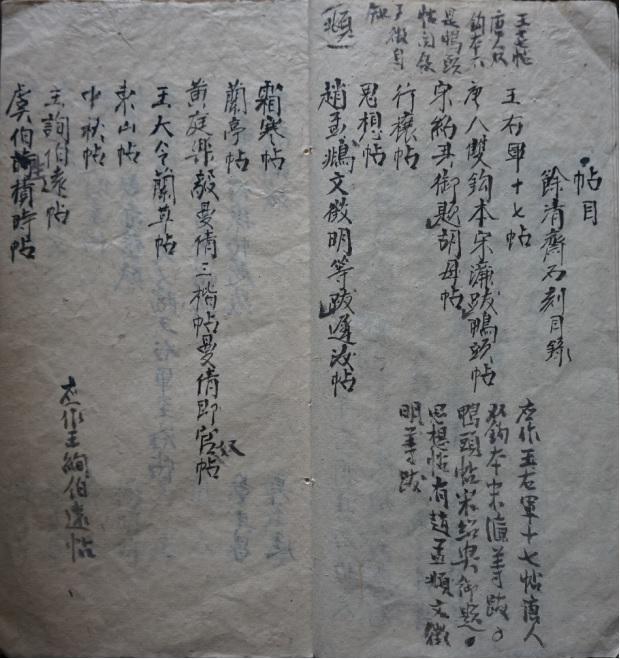 王十七帖
唐人双
鈎本
是鴨頭
頫
帖目
餘清齋石刻目錄
王右軍十七帖
唐人雙鈎本宋濂跋鴨頭帖
宋紹興御题胡母帖
行穰帖
思想帖
趙孟頫文徵明等跋遲汝帖
应作王右軍十七帖唐人
双鈎本宋濂等跋。
鴨頭帖宋紹興御题。
思想帖有趙孟頫文徵
明等跋
霜寒帖
蘭亭帖
黄庭樂毅曼倩三楷帖曼倩即官奴帖
王大令蘭草帖
東山帖
中秋帖
王詢伯遠帖
虞伯施積時帖
应作王絢伯遠帖